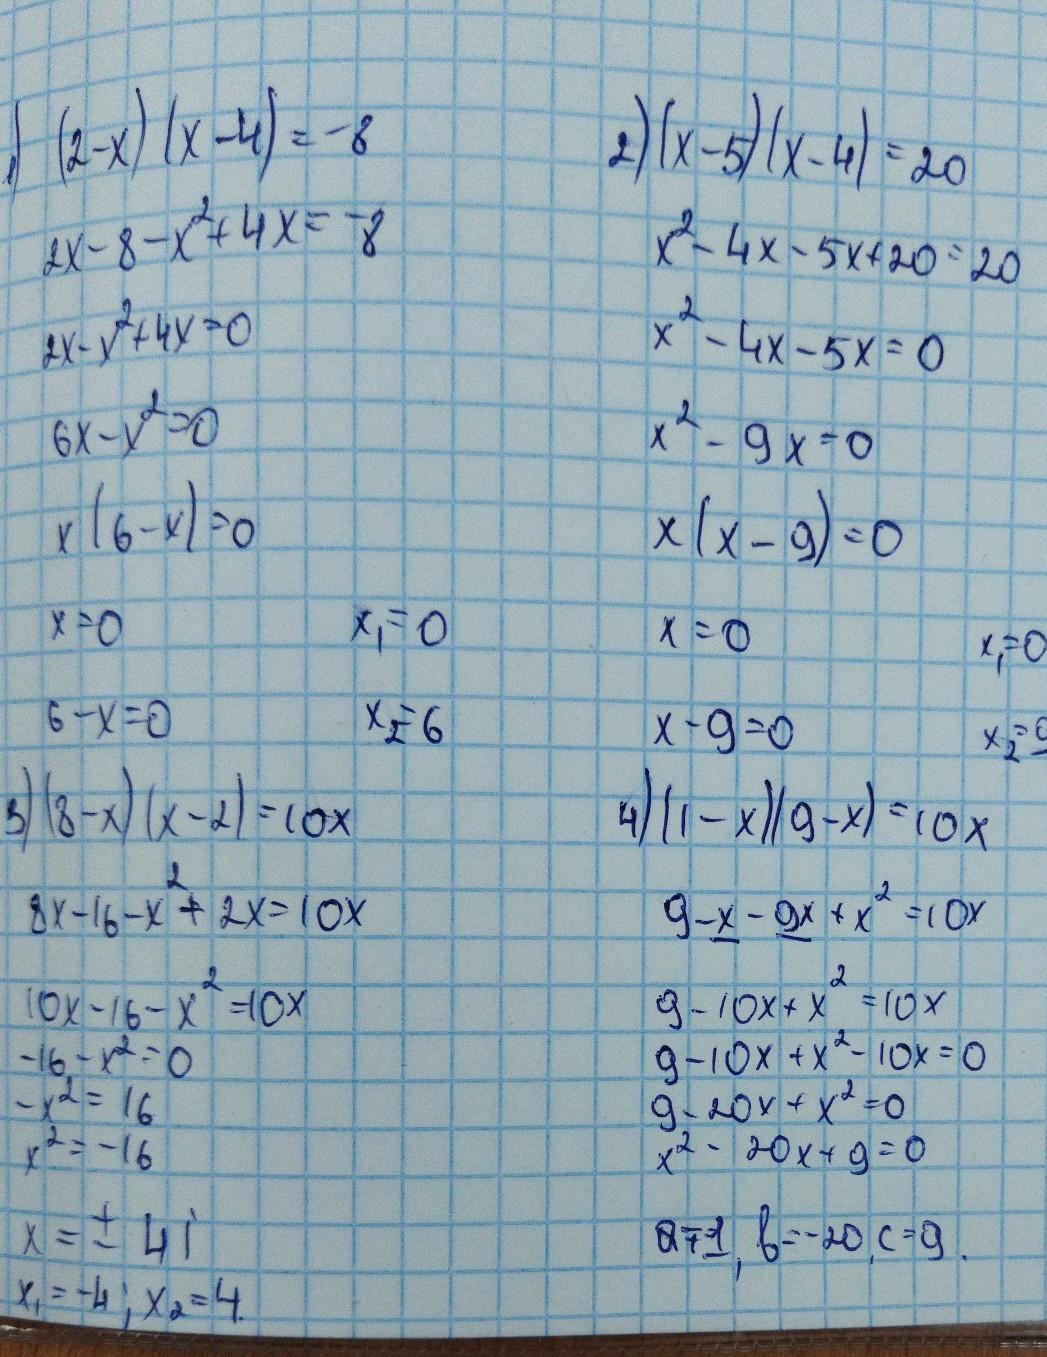 1) (2-x) (x-4) = -8
2x-8-x²+4x=-8
2x-x²+4x=0
6x-x²=0
x(6-x)=0
x=0 x₁=0
6-x=0 x₂=6
2) (x-5)(x-4)=20
x²-4x-5x+20=20
x²-4x-5x=0
x²-9x=0
x(x-9)=0
x=0 x₁=0
x-9=0 x₂=9
3) (8-x) (x-2) =10x
8x-16-x²+2x=10x
10x-16-x²=10x
-16-x²=0
-x²=16
x²=-16
x=±4i
x₁=-4; x₂=4.
4) (1-x)(9-x)=10x
9-x-9x+x²=10x
9-10x+x²=10x
9-10x+x²-10x=0
9-20x+x²=0
x²-20x+9=0
a=1, b=-20, c=9.